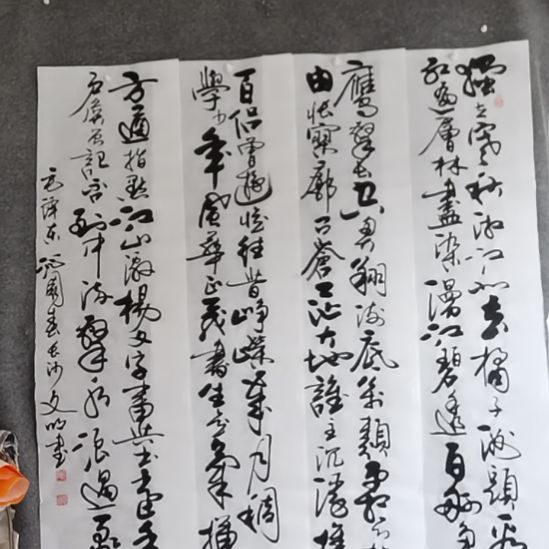 獨立寒秋湘江北去橘子洲頭看
紅遍層林盡染漫江碧透百舸爭
鷹擊長空魚翔淺底萬類霜天
由悵寥廓问蒼茫大地誰主沉浮攜
百侣曾遊憶往昔崢嶸歲月稠
學少年風華正茂書生意氣揮
方遒指點江山激揚文字糞土當年
户侯曾記否到中流擊水浪遏飛
毛澤東沁園春長沙文明書